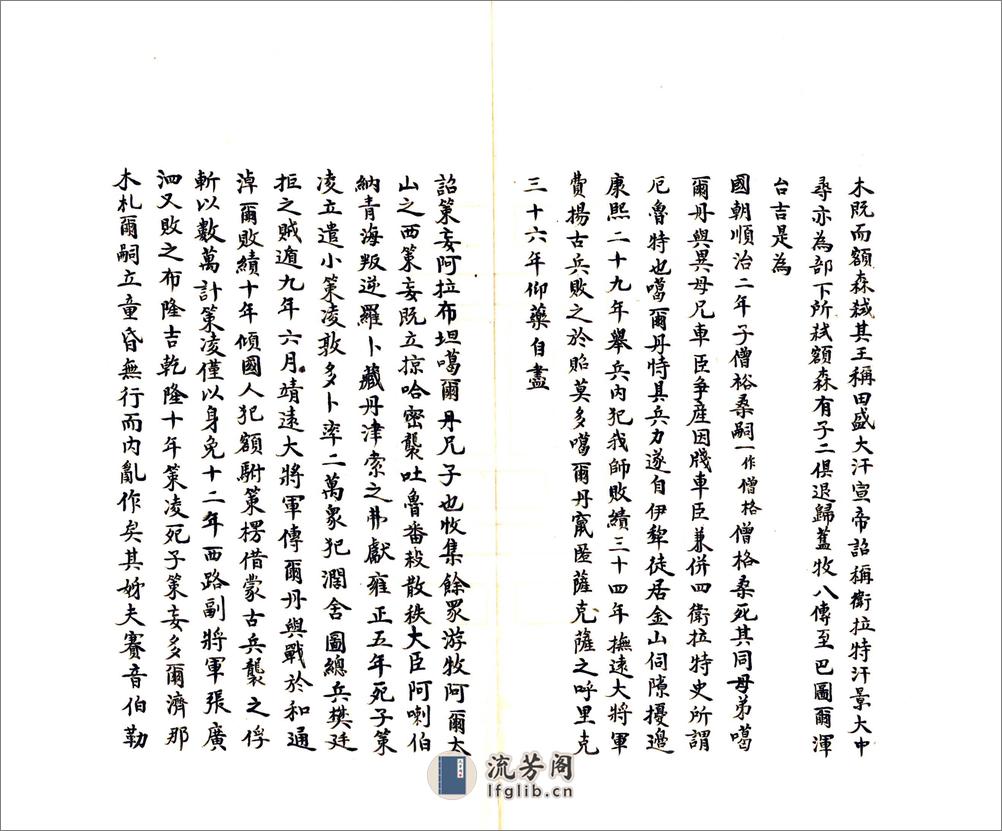 木既而額森弒其王稱田盛大汗宣帝詔稱衛拉特汗景大中
尋亦為部下所弒額森有子二俱退歸舊牧八傳至巴圖爾渾
台吉是為
國朝順治二年子僧裕桑嗣一作僧格僧格桑死其同母弟噶
爾丹與異母兄車臣爭產因戕車臣兼併四衛拉特史所謂
厄魯特也噶爾丹恃其兵力遂自伊犂徙居金山伺隙擾邊
康熙二十九年舉兵內犯我師敗績三十四年撫遠大將軍
費揚古兵敗之於昭莫多噶爾丹竄匿薩克薩之呼里克
三十六年仰藥自盡
詔策妄阿拉布坦噶爾丹兄子也收集餘眾游牧阿爾太
山之西策妄既立掠哈密襲吐魯番殺散秩大臣阿喇伯
納青海叛逆羅卜藏丹津索之弗獻雍正五年死子策
凌立遣小策凌敦多卜率二萬眾犯濶舍圖總兵樊廷
拒之賊遁九年六月靖遠大將軍傅爾丹與戰於和通
淖爾敗績十年傾國人犯額駙策楞借蒙古兵襲之俘
斬以數萬計策凌僅以身免十二年西路副將軍張廣
泗又敗之布隆吉乾隆十年策凌死子策妄多爾濟那
木札爾嗣立童昏無行而內亂作矣其姊夫賽音伯勒
流芳阁
lfglib.cn